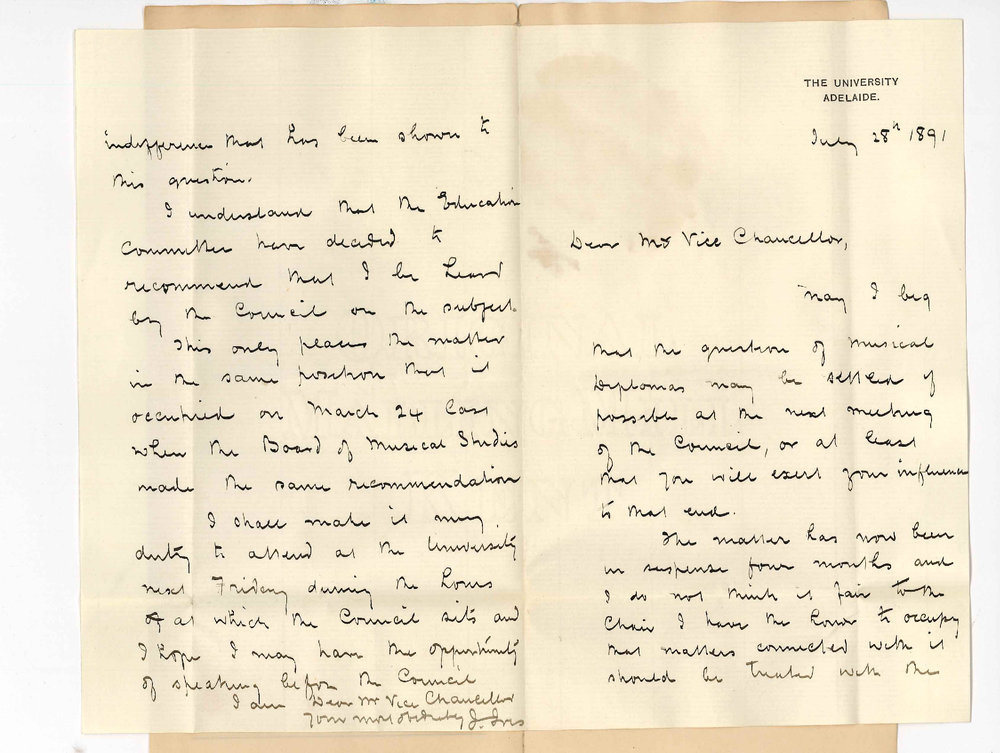 THE UNIVERSITY
ADELAIDE.
July 28th 1891
Dear Mr Vice Chancellor,
May I beg
that the question of Musical
Diplomas may be settled if
possible at the next meeting
of the Council, or at least
that you will exert your influence
to that end.
The matter has now been
in suspense four months and
I do not think it fair to the
Chair I have the honor to occupy
that matters connected with it
should be treated with the
indifference that has been shown to
this question.
I understand that the Education
Committee have decided to
recommend that I be heard
by the Council on the subject.
This only places the matter
in the same position that it
occupied on March 24 last
when the Board of Musical Studies
made the same recommendation
I shall make it my
duty to attend at the University
next Friday during the hours
at which the Council sits and
I hope I may have the opportunity
of speaking before the Council
I am Dear Mr Vice Chancellor
Your most obediently J. Ives